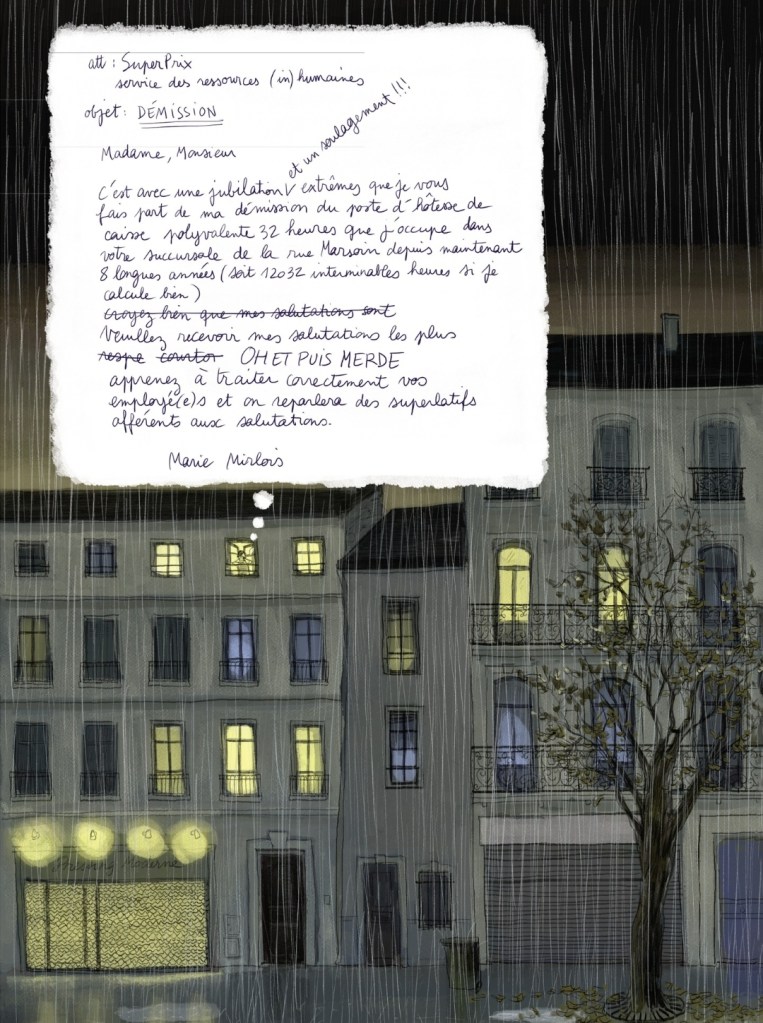 att : SuperPrix
service des ressources (in)humaines
objet : DÉMISSION
Madame, Monsieur
et un soulagement !!!
C'est avec une jubilation V extrêmes que je vous
fais part de ma démission du poste d'hôtesse de
caisse polyvalente 32 heures que j'occupe dans
votre succursale de la rue Marsoin depuis maintenant
8 longues années (soit 12032 interminables heures si je
calcule bien)
Croyez bien que mes salutations sont
Veuillez recevoir mes salutations les plus
respe courtoi OH ET PUIS MERDE
apprenez à traiter correctement vos
employé(e)s et on reparlera des superlatifs
afférents aux salutations.
Marie Mirlois
Moderne